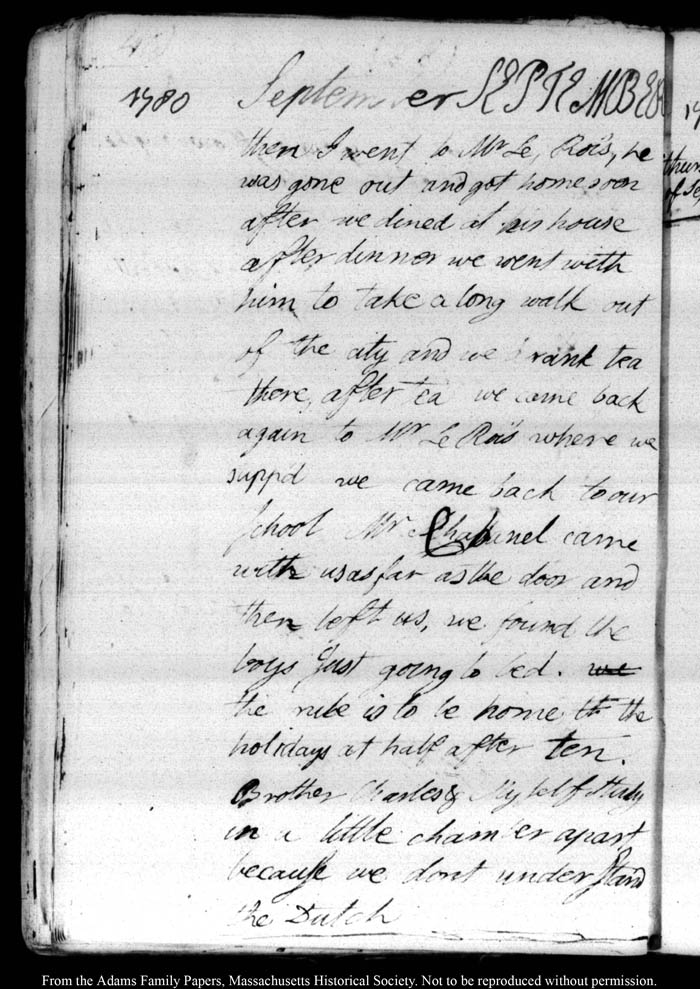 1780 September SEPTEMBER
then I went to Mr Le, Rois, he
was gone out and got home soon
after we dined at his house
after dinner we went with
him to take a long walk out
of the city and we drank tea
there, after tea we came back
again to Mr Le Rois where we
supp'd we came back to our
school Mr Chabanel came
with us as far as the door and
then left us, we found the
boys Just going to bed. we
the rule is to be home th the
holidays at half after ten.
Brother Charles & Myself Study
in a little chamber apart
because we dont understand
the Dutch
From the Adams Family Papers, Massachusetts Historical Society. Not to be reproduced without permission.